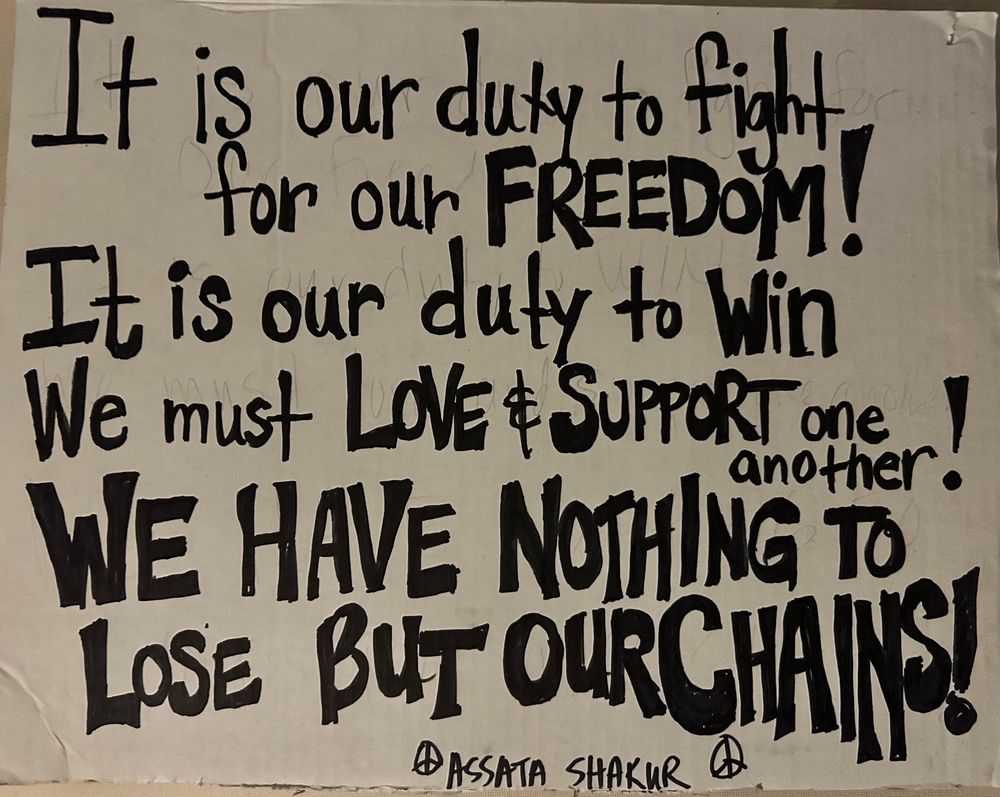 It is our duty to fight
for our FREEDOM!
It is our duty to Win
We must LOVE & SUPPORT one
another!
WE HAVE NOTHING TO
LOSE BUT OUR CHAINS!
ASSATA SHAKUR